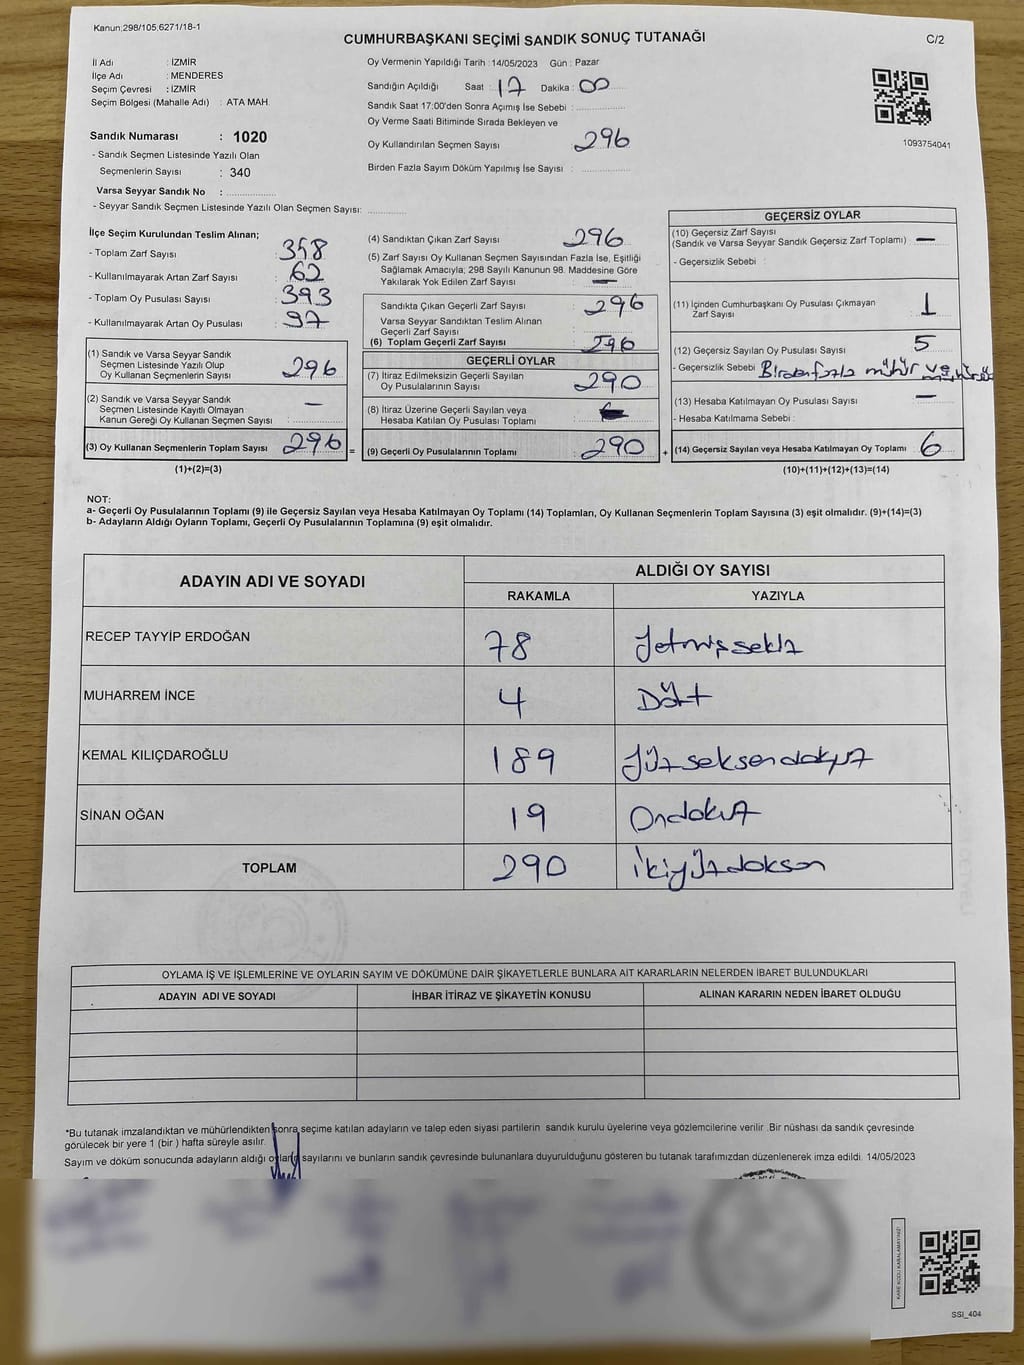 Kanun;298/105,6271/18-1
CUMHURBAŞKANI SEÇİMİ SANDIK SONUÇ TUTANAĞI
C/2
İl Adı : İZMİR
İlçe Adı : MENDERES
Seçim Çevresi : İZMİR
Seçim Bölgesi (Mahalle Adı) : ATA MAH.
Sandık Numarası : 1020
- Sandık Seçmen Listesinde Yazılı Olan
Seçmenlerin Sayısı : 340
Varsa Seyyar Sandık No :
- Seyyar Sandık Seçmen Listesinde Yazılı Olan Seçmen Sayısı:
Oy Vermenin Yapıldığı Tarih : 14/05/2023 Gün : Pazar
Sandığın Açıldığı Saat : 17 Dakika : 00
Sandık Saat 17:00'den Sonra Açımış İse Sebebi :
Oy Verme Saati Bitiminde Sırada Bekleyen ve
Oy Kullandırılan Seçmen Sayısı : 296
Birden Fazla Sayım Döküm Yapılmış İse Sayısı :
1093754041
İlçe Seçim Kurulundan Teslim Alınan;
- Toplam Zarf Sayısı : 358
- Kullanılmayarak Artan Zarf Sayısı : 62
- Toplam Oy Pusulası Sayısı : 393
- Kullanılmayarak Artan Oy Pusulası : 97
(1) Sandık ve Varsa Seyyar Sandık
Seçmen Listesinde Yazılı Olup
Oy Kullanan Seçmenlerin Sayısı : 296
(2) Sandık ve Varsa Seyyar Sandık
Seçmen Listesinde Kayıtlı Olmayan
Kanun Gereği Oy Kullanan Seçmen Sayısı : —
(3) Oy Kullanan Seçmenlerin Toplam Sayısı : 296
(1)+(2)=(3)
(4) Sandıktan Çıkan Zarf Sayısı : 296
(5) Zarf Sayısı Oy Kullanan Seçmen Sayısından Fazla İse, Eşitliği
Sağlamak Amacıyla; 298 Sayılı Kanunun 98. Maddesine Göre
Yakılarak Yok Edilen Zarf Sayısı : —
Sandıkta Çıkan Geçerli Zarf Sayısı : 296
Varsa Seyyar Sandıktan Teslim Alınan
Geçerli Zarf Sayısı :
(6) Toplam Geçerli Zarf Sayısı : 296
GEÇERLİ OYLAR
(7) İtiraz Edilmeksizin Geçerli Sayılan
Oy Pusulalarının Sayısı : 290
(8) İtiraz Üzerine Geçerli Sayılan veya
Hesaba Katılan Oy Pusulası Toplamı :
= (9) Geçerli Oy Pusulalarının Toplamı : 290 +
GEÇERSİZ OYLAR
(10) Geçersiz Zarf Sayısı
(Sandık ve Varsa Seyyar Sandık Geçersiz Zarf Toplamı) : —
- Geçersizlik Sebebi :
(11) İçinden Cumhurbaşkanı Oy Pusulası Çıkmayan
Zarf Sayısı : 1
(12) Geçersiz Sayılan Oy Pusulası Sayısı : 5
- Geçersizlik Sebebi : Birden fazla mühür ve
(13) Hesaba Katılmayan Oy Pusulası Sayısı : —
- Hesaba Katılmama Sebebi :
(14) Geçersiz Sayılan veya Hesaba Katılmayan Oy Toplamı : 6
(10)+(11)+(12)+(13)=(14)
NOT:
a- Geçerli Oy Pusulalarının Toplamı (9) ile Geçersiz Sayılan veya Hesaba Katılmayan Oy Toplamı (14) Toplamları, Oy Kullanan Seçmenlerin Toplam Sayısına (3) eşit olmalıdır. (9)+(14)=(3)
b- Adayların Aldığı Oyların Toplamı, Geçerli Oy Pusulalarının Toplamına (9) eşit olmalıdır.
ADAYIN ADI VE SOYADI ALDIĞI OY SAYISI
RAKAMLA YAZIYLA
RECEP TAYYİP ERDOĞAN 78 Yetmişsekiz
MUHARREM İNCE 4 Dört
KEMAL KILIÇDAROĞLU 189 Yüzseksendokuz
SİNAN OĞAN 19 Ondokuz
TOPLAM 290 İkiyüzdoksan
OYLAMA İŞ VE İŞLEMLERİNE VE OYLARIN SAYIM VE DÖKÜMÜNE DAİR ŞİKAYETLERLE BUNLARA AİT KARARLARIN NELERDEN İBARET BULUNDUKLARI
ADAYIN ADI VE SOYADI İHBAR İTİRAZ VE ŞİKAYETİN KONUSU ALINAN KARARIN NEDEN İBARET OLDUĞU
*Bu tutanak imzalandıktan ve mühürlendikten sonra seçime katılan adayların ve talep eden siyasi partilerin sandık kurulu üyelerine veya gözlemcilerine verilir .Bir nüshası da sandık çevresinde
görülecek bir yere 1 (bir ) hafta süreyle asılır.
Sayım ve döküm sonucunda adayların aldığı oyların sayılarını ve bunların sandık çevresinde bulunanlara duyurulduğunu gösteren bu tutanak tarafımızdan düzenlenerek imza edildi. 14/05/2023
KARE KODU KARALAMAYINIZ!
SSI_404